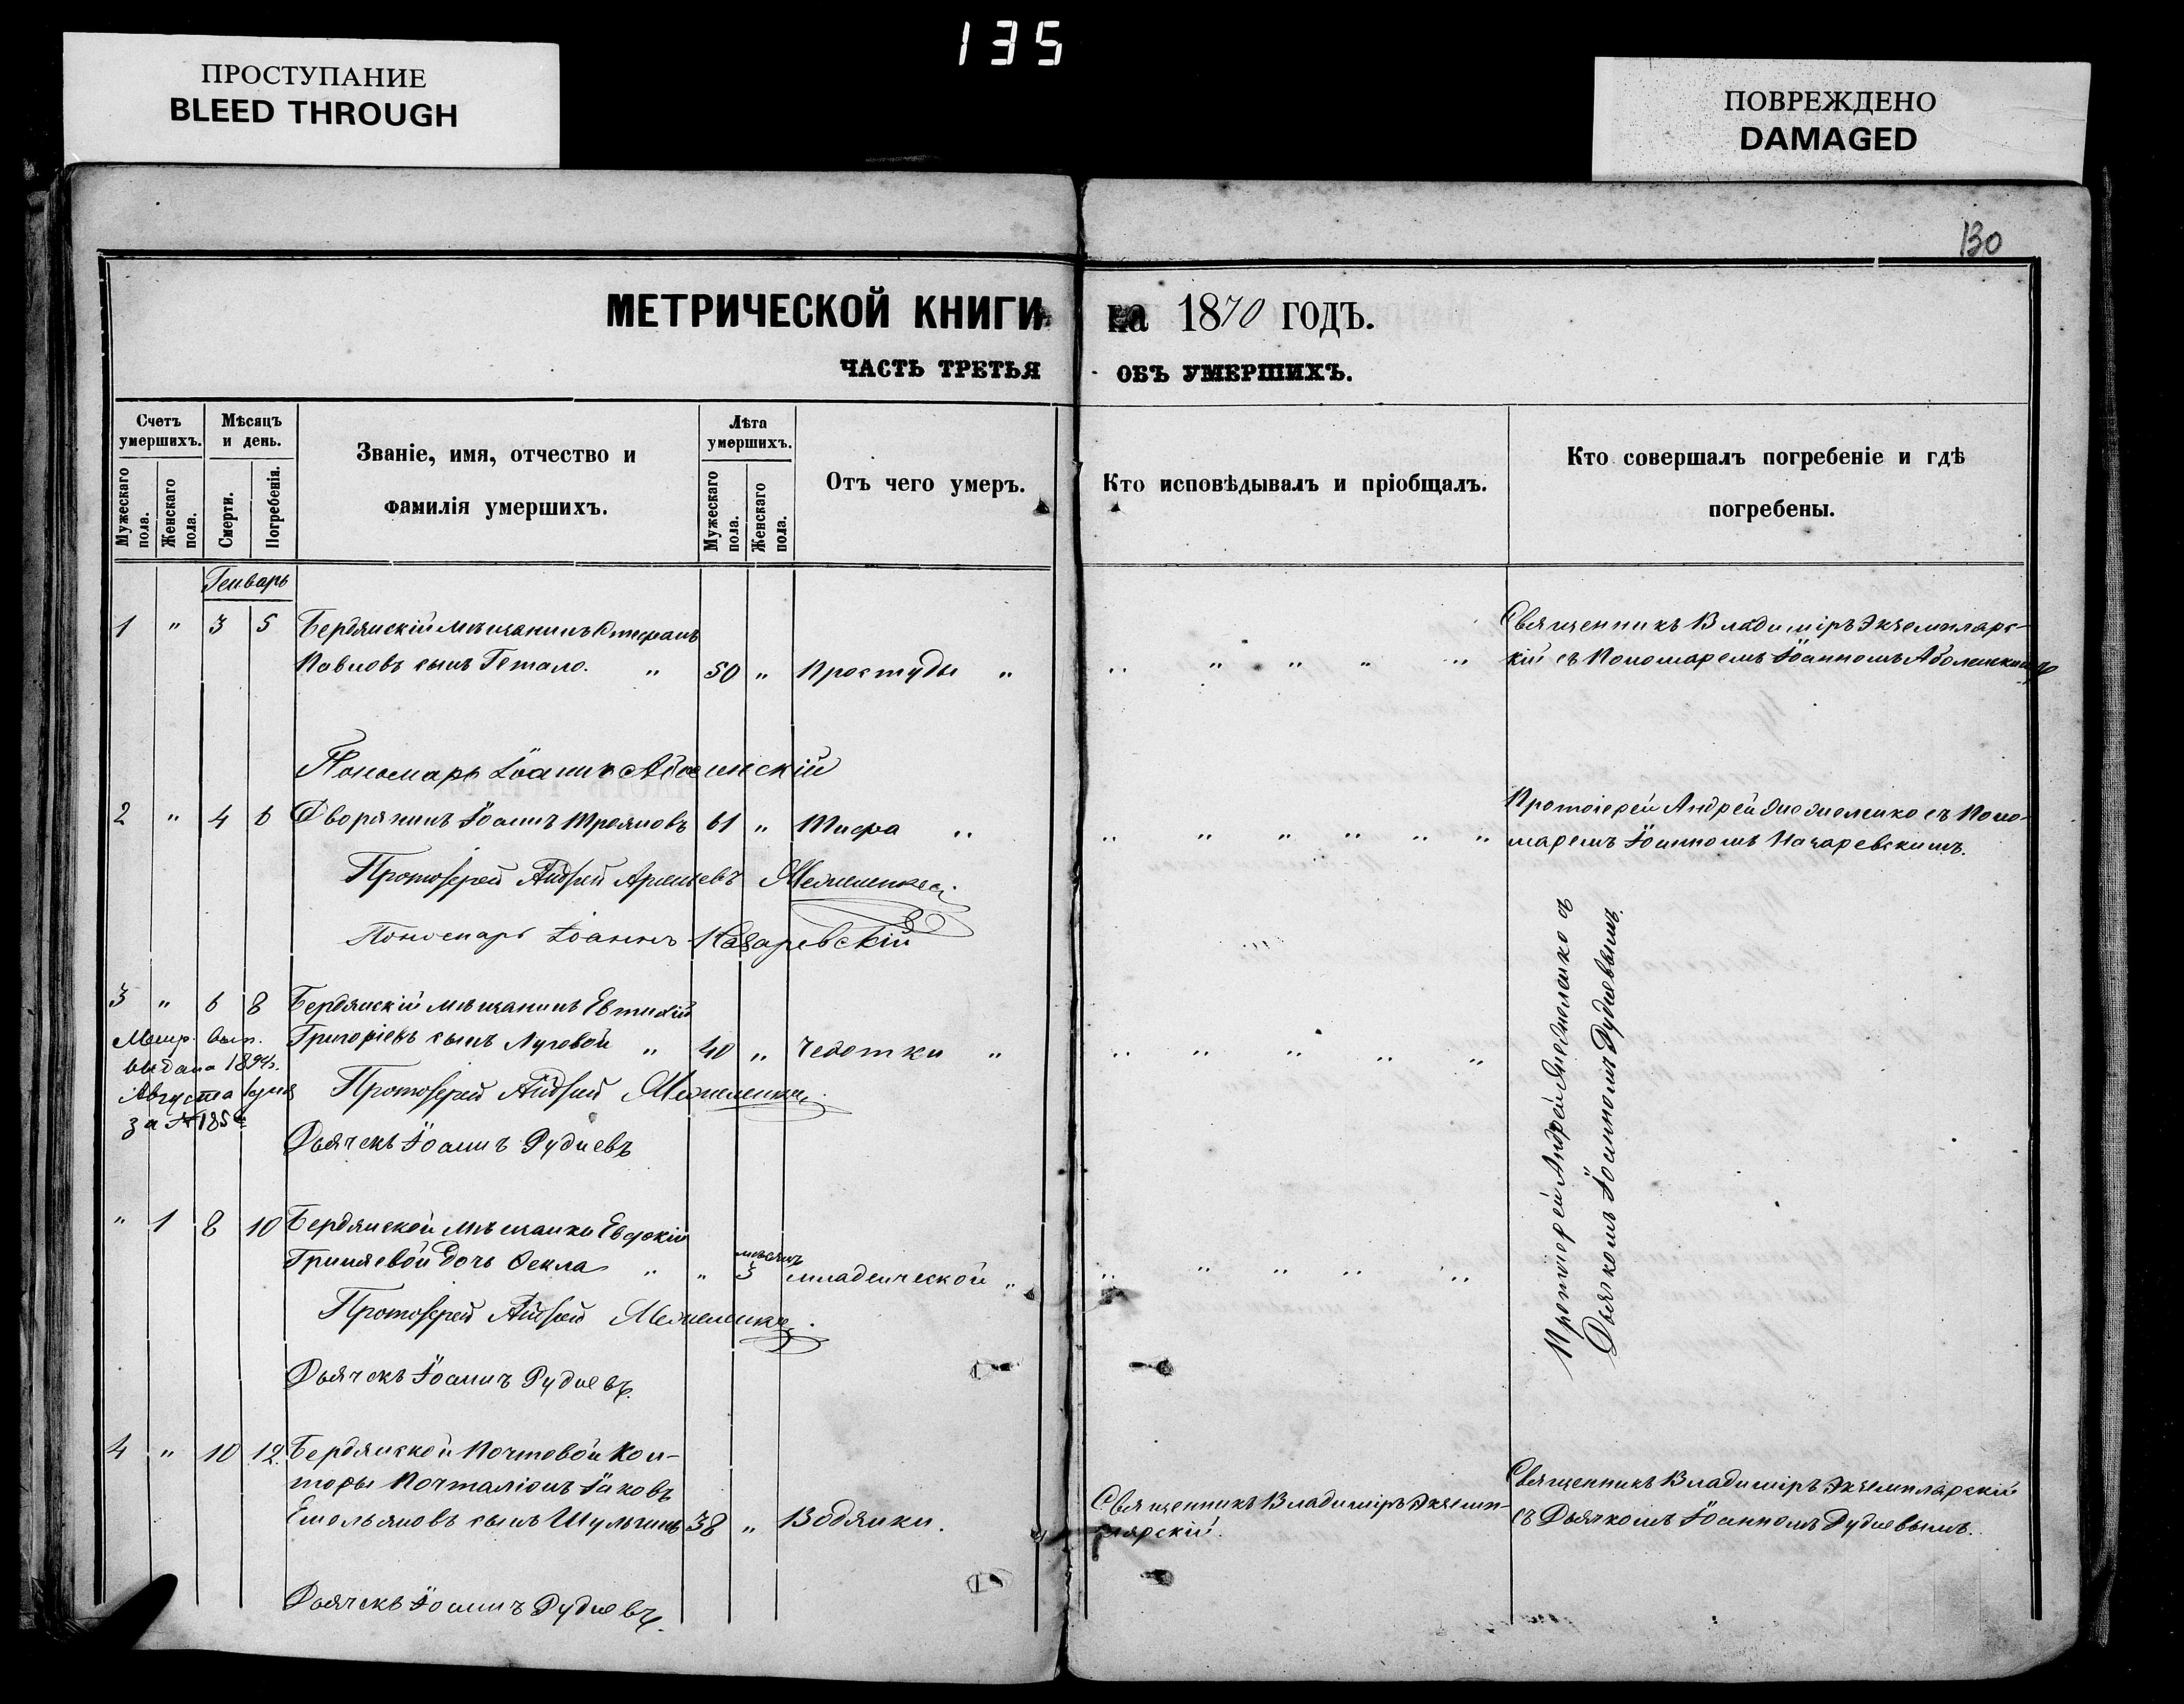 135
ПРОСТУПАНИЕ
BLEED THROUGH
ПОВРЕЖДЕНО
DAMAGED
130
МЕТРИЧЕСКОЙ КНИГИ на 1870 ГОДЪ.
ЧАСТЬ ТРЕТЬЯ ОБЪ УМЕРШИХЪ.
Счетъ умершихъ.
Мужескаго пола.
Женскаго пола.
Мѣсяцъ и день.
Смерти.
Погребенія.
Званіе, имя, отчество и
фамилія умершихъ.
Лѣта умершихъ.
Мужескаго пола.
Женскаго пола.
Отъ чего умеръ.
Кто исповѣдывалъ и пріобщалъ.
Кто совершалъ погребеніе и гдѣ
погребены.
Генварь
1 " 3 5 Бердянскій мѣщанинъ Стефанъ
Павловъ сынъ Гетало. " 50 " Простуды "
Священникъ Владиміръ Экземпляр-
кій съ Пономаремъ Іоанномъ
Пономарь Іоаннъ
2 " 4 6 Дворянинъ Іоаннъ Трояновъ 61 " Тифа "
Протоіерей Андрей съ Поно-
маремъ Іоанномъ Назаревскимъ.
Протоіерей Андрей Арсеньевъ
Пономарь Іоаннъ Назаревскій
3 " 6 8 Бердянскій мѣщанинъ Евтихій
Григоріевъ сынъ Луговой " 40 " Чахотки "
Метр. вып.
выдана 1894г.
Августа
за №
Протоіерей Андрей
Дьячекъ Іоаннъ Рудневъ
" 1 8 10 Бердянской мѣщанки Евдокіи
Гриняевой дочь Фекла " " мѣсяцъ 3 младенческой "
Протоіерей Андрей
Дьячекъ Іоаннъ Рудневъ.
Протоіерей Андрей съ
Дьячкомъ Іоанномъ Рудневымъ.
4 " 10 12 Бердянской Почтовой Кон-
торы Почталіонъ Іаковъ
Емельяновъ сынъ Шульгинъ 38 " Водянки.
Священникъ Владиміръ Экземп-
лярскій.
Священникъ Владиміръ Экземплярскій
съ Дьячкомъ Іоанномъ Рудневымъ.
Дьячекъ Іоаннъ Рудневъ.